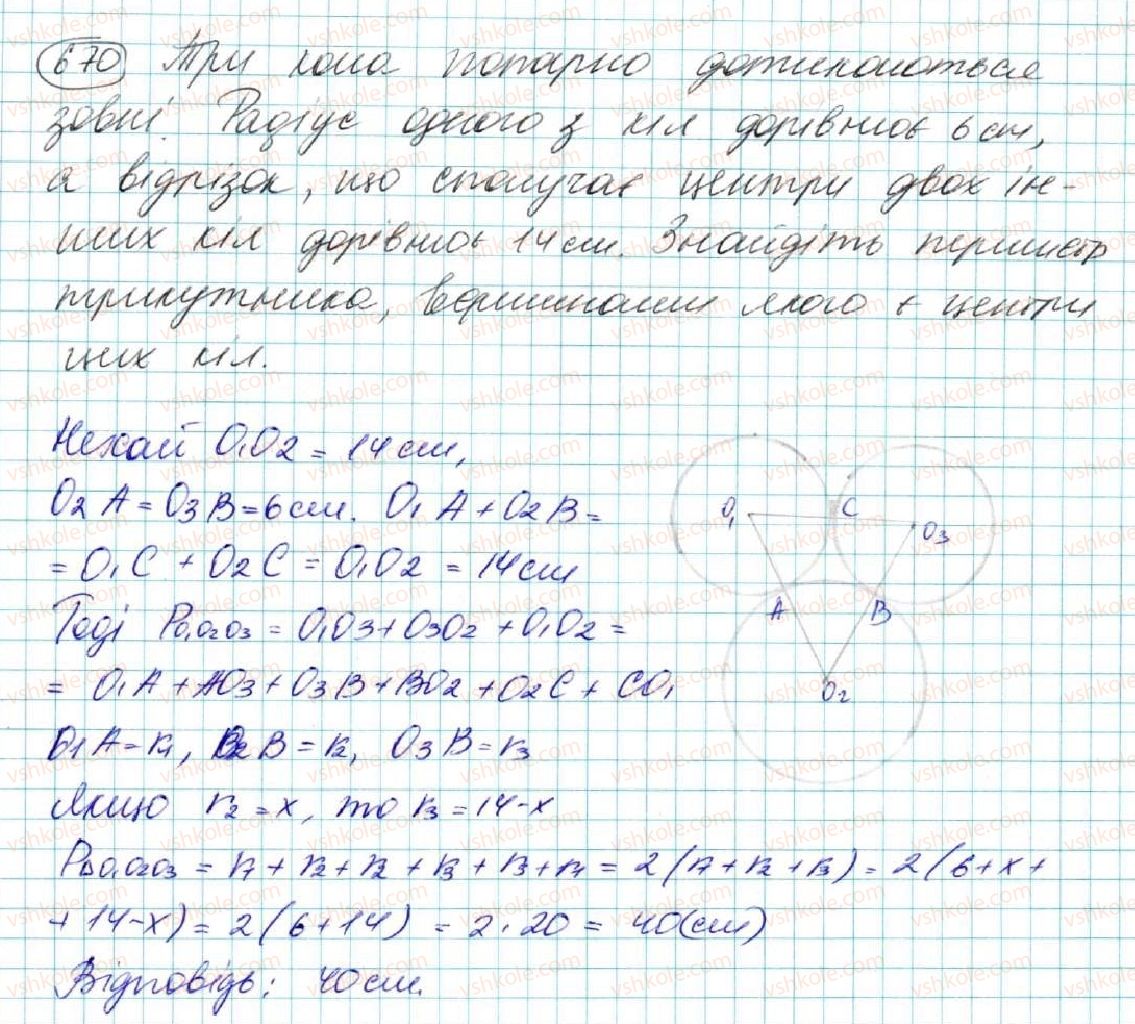 670 Три кола попарно дотикаються
зовні. Радіус одного з кіл дорівнює 6 см,
а відрізок, що сполучає центри двох ін-
ших кіл дорівнює 14 см. Знайдіть периметр
трикутника, вершинами якого є центри
цих кіл.
Нехай O₁O₂ = 14 см,
O₂A = O₃B = 6 см. O₁A + O₂B =
= O₁C + O₂C = O₁O₂ = 14 см
Тоді P₀₁₀₂₀₃ = O₁O₃ + O₃O₂ + O₁O₂ =
= O₁A + AO₃ + O₃B + BO₂ + O₂C + CO₁
O₁A = r₁, O₂B = r₂, O₃B = r₃
Якщо r₂ = x, то r₃ = 14 - x
PΔO₁O₂O₃ = r₁ + r₂ + r₂ + r₃ + r₃ + r₁ = 2(r₁ + r₂ + r₃) = 2(6 + x +
+ 14 - x) = 2(6 + 14) = 2 · 20 = 40 (см)
Відповідь: 40 см.
O₁
C
O₃
A
B
O₂
vshkole.com